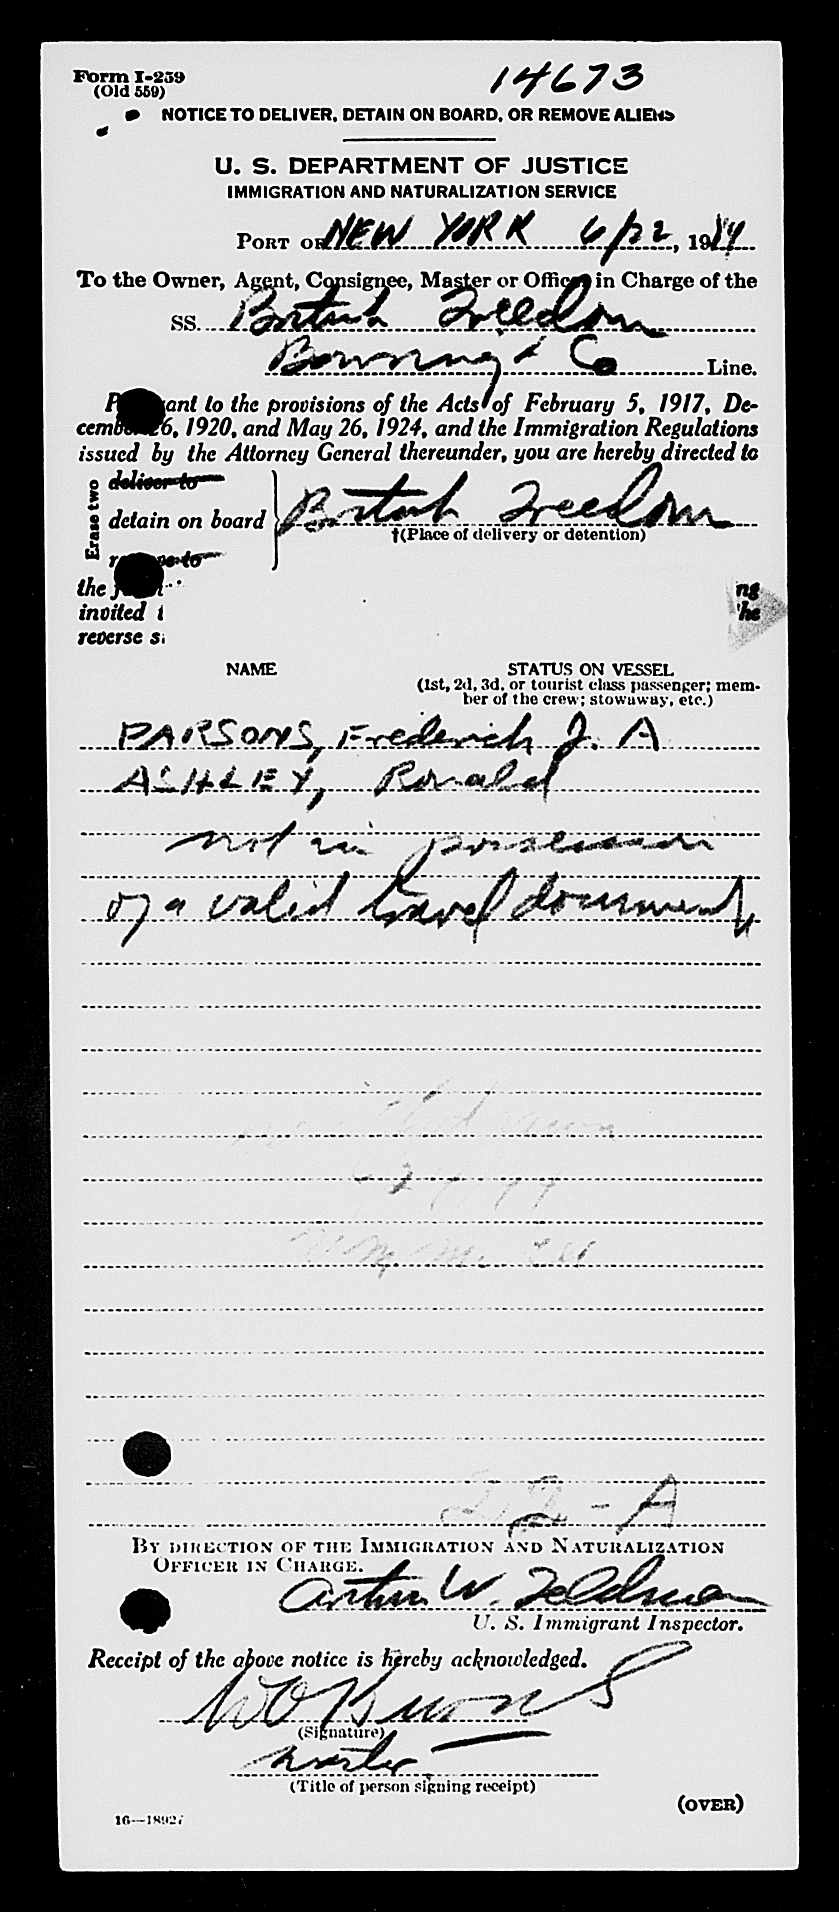 Form I-259
(Old 559)
14673
NOTICE TO DELIVER, DETAIN ON BOARD, OR REMOVE ALIENS
U. S. DEPARTMENT OF JUSTICE
IMMIGRATION AND NATURALIZATION SERVICE
PORT OF NEW YORK 6/22, 1944
To the Owner, Agent, Consignee, Master or Officer in Charge of the
SS. British Freedom
& Co Line.
ant to the provisions of the Acts of February 5, 1917, De-
cember 26, 1920, and May 26, 1924, and the Immigration Regulations
issued by the Attorney General thereunder, you are hereby directed to
Erase two
deliver to
detain on board British Freedom
†(Place of delivery or detention)
remove to
the
ng
invited
the
reverse
NAME
STATUS ON VESSEL
(1st, 2d, 3d, or tourist class passenger; mem-
ber of the crew; stowaway, etc.)
PARSONS, Frederick J. A
ASHLEY, Ronald
not in possession
of a valid travel document
22-A
BY DIRECTION OF THE IMMIGRATION AND NATURALIZATION
OFFICER IN CHARGE.
Arthur W. Feldman
U. S. Immigrant Inspector.
Receipt of the above notice is hereby acknowledged.
(Signature)
Master
(Title of person signing receipt)
(OVER)
16—18927